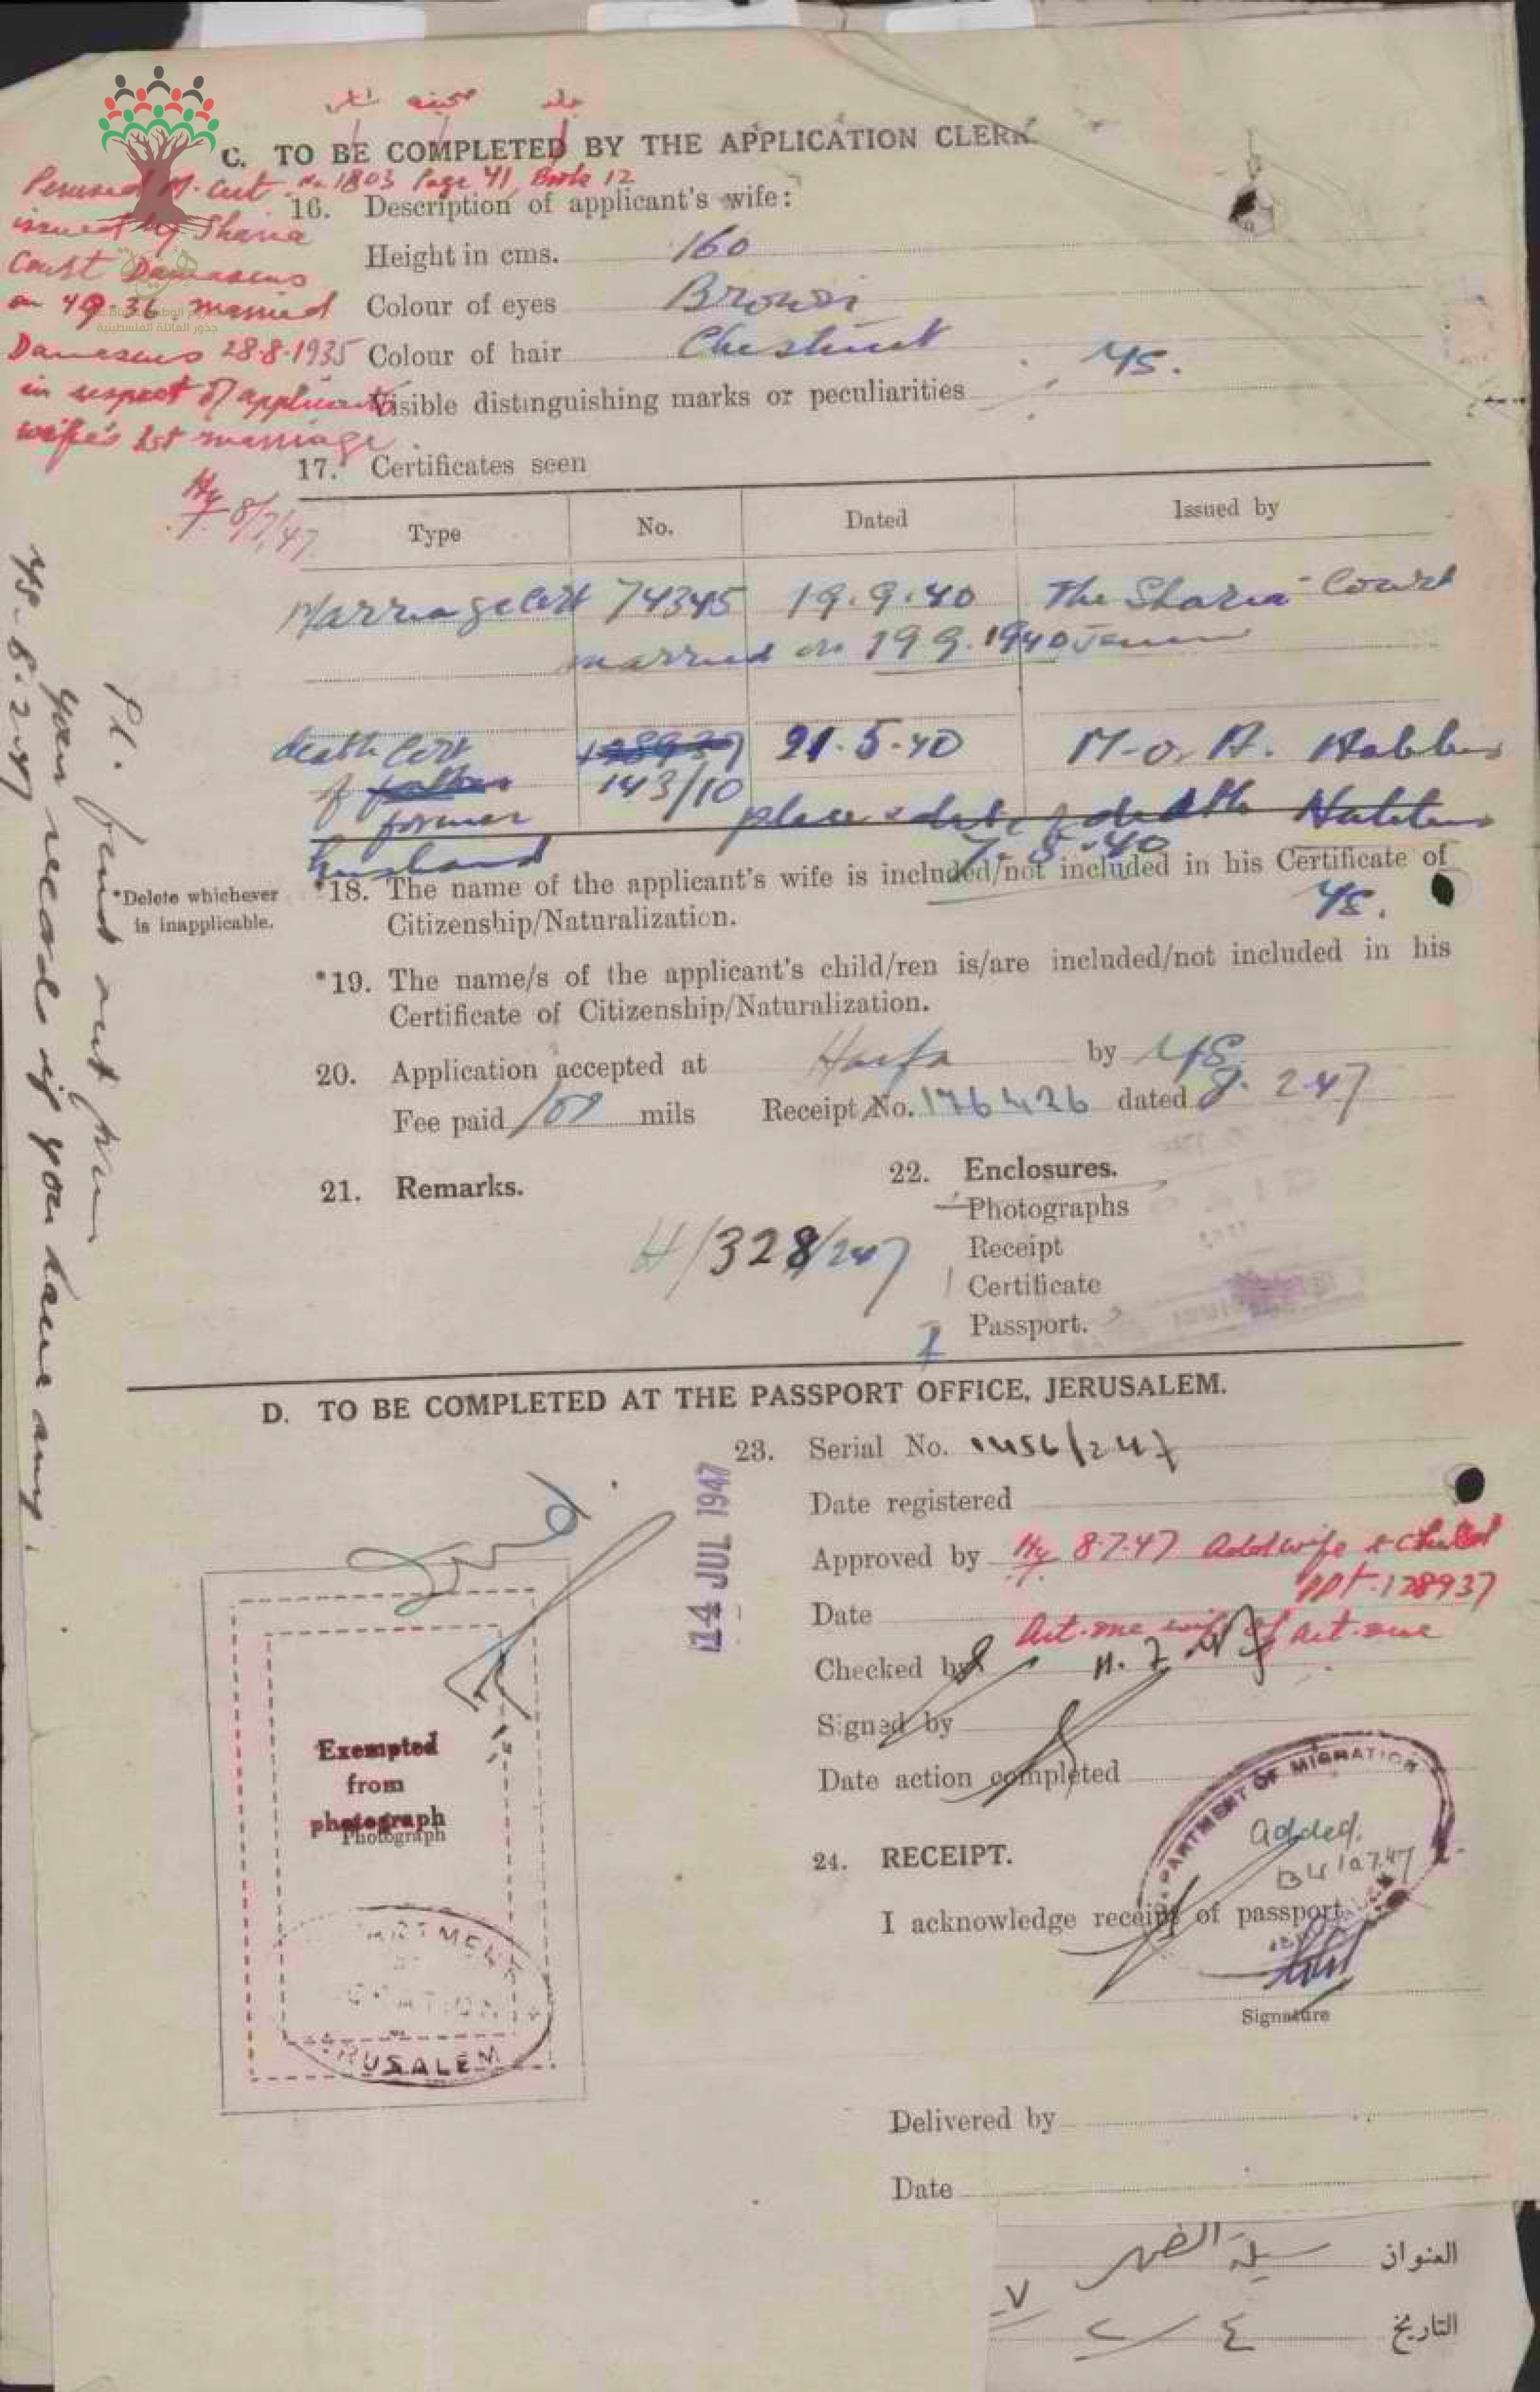 جلد صحيفة
C. TO BE COMPLETED BY THE APPLICATION CLERK.
Perused M. Cert. No 1803 Page 41, Book 12
issued by Sharia
Court Damascus
on 4.9.36. married
Damascus 28-8-1935
in respect of applicant's
wife's 1st marriage.
8/7/47
16. Description of applicant's wife:
Height in cms. 160
Colour of eyes Brown
Colour of hair Chestnut
Visible distinguishing marks or peculiarities
17. Certificates seen
Type No. Dated Issued by
Marriage Cert 74345 19.9.40 The Sharia Court
married on 19 9.1940 Jenin
death Cert 128937 21.5.40 M.o.H. Nablus
of father 143/10
former place & date of death Nablus
husband 7-5-40
*Delete whichever
is inapplicable.
*18. The name of the applicant's wife is included/not included in his Certificate of
Citizenship/Naturalization.
*19. The name/s of the applicant's child/ren is/are included/not included in his
Certificate of Citizenship/Naturalization.
20. Application accepted at Haifa by YS
Fee paid 100 mils Receipt No. 176426 dated 8. 2.47
21. Remarks.
H/328/247
22. Enclosures.
Photographs
Receipt
1 Certificate
1 Passport.
Pl. find out from
your records if you have any.
YS-8.2.47
D. TO BE COMPLETED AT THE PASSPORT OFFICE, JERUSALEM.
14 JUL 1947
23. Serial No. 1456/247
Date registered
Approved by Hy 8-7-47 Add wife & child
PPt. 128937
Date
Art. one wife of art. one
Checked by
Signed by
Date action completed
Exempted
from
photograph
Photograph
DEPARTMENT OF MIGRATION
JERUSALEM
DEPARTMENT OF MIGRATION
JERUSALEM
added.
24. RECEIPT.
I acknowledge receipt of passport
Signature
Delivered by
Date
العنوان سيلة الظهر
التاريخ ٤ / ٢ / ٤٧